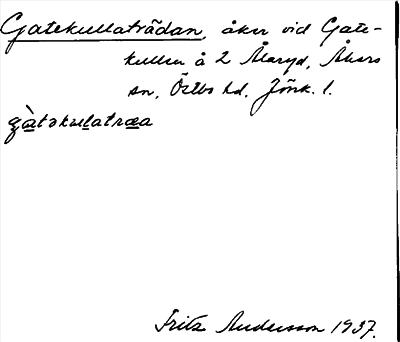 Gatekullaträdan, åker vid Gate-
kullen å 2 Åaryd, Åkers
sn, Östbo hd, Jönk. l.
gàtəkulatræa
Fritz Andersson 1937.